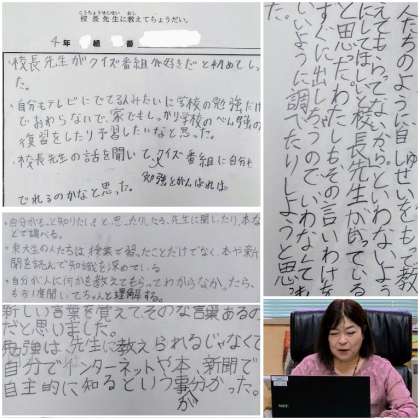 こうちょうせんせい おし
校長先生に教えてちょうだい。
4年 組 番
・校長先生がクイズ番組が好きだと初めてしっ
た。
・自分もテレビにでてる人みたいに学校の勉強だけ
でおわらないで、家でもしっかり学校のべん強の
復習をしたり予習したいなと思った。
・校長先生の話を聞いて、クイズ番組に自分も
勉強をがんばれば。
でれるのかなと思った。
んたちのように自しゅぜいをもで教
えてもらってないから。といわないよう
にしてほしいと校長先生がいっている
と思った。わたしもその言いわけを
すぐに出しちゃうのでいわなくて
いいように調べたりしようと思
た。
・自分がもっと知りたいもと、思ったりしたら、先生に聞いたり、本な
どで調べる。
・東大生の人たちは、授業で習ったことだけでなく、本や新
聞を読んで知識を深めている
・自分が人に何かを教えてもらってわからなか、たら、
もう1度聞いてちゃんと理解する。
新しい言葉を覚えてそのな言葉あるの
だと思いました。
勉強は、先生に教えられるじゃなくて
自分でインターネットや本、新聞で
自主的に知るという事が分かった。